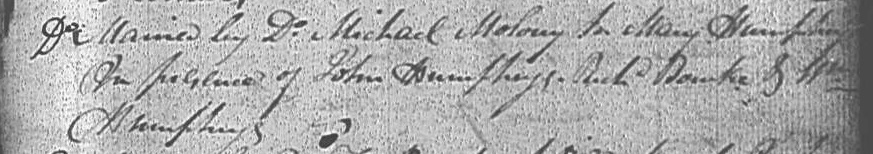 Do Married by Do Michael Molony to Mary Humphrys
In presence of John Humphrys, Richd Bourke & Wm
Humphrys